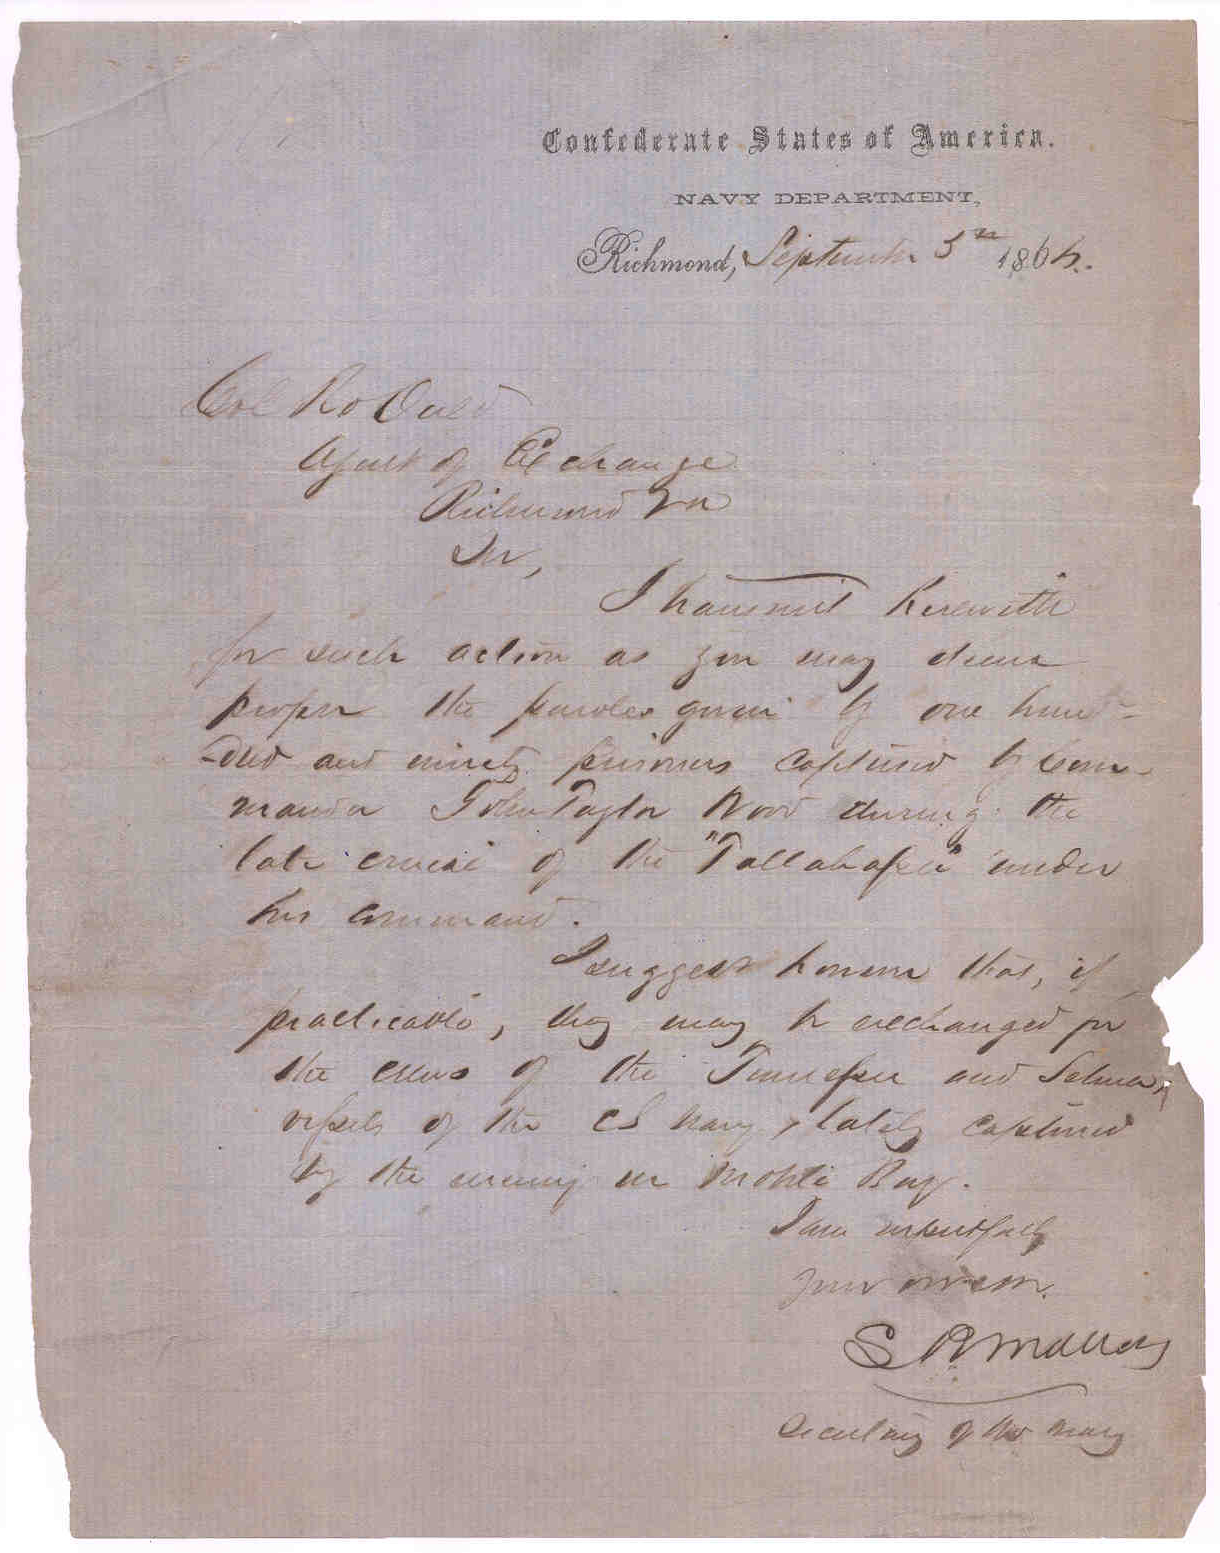 Confederate States of America.
NAVY DEPARTMENT,
Richmond, September 5th 1864.
Col Ro Ould
Agent of Exchange
Richmond Va
Sir,
I transmit herewith
for such action as you may deem
proper the paroles given by one hund-
-red and ninety prisoners captured by Com-
mander John Taylor Wood during the
late cruise of the "Tallahassee" under
his command.
I suggest however that, if
practicable, they may be exchanged for
the crews of the Tennessee and Selma,
vessels of the CS Navy, lately captured
by the enemy in Mobile Bay.
I am respectfully
your ob sevt.
S R Mallory
Secretary of the Navy